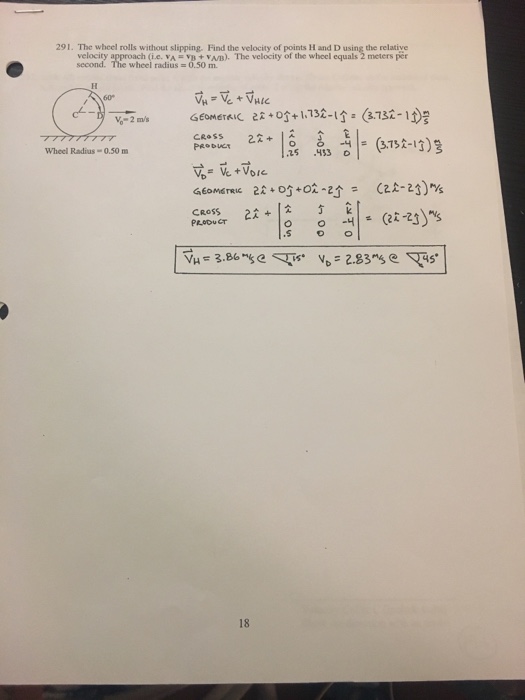 291. The wheel rolls without slipping. Find the velocity of points H and D using the relative
velocity approach (i.e. vA = vB + vA/B). The velocity of the wheel equals 2 meters per
second. The wheel radius = 0.50 m.
H
60°
C
D
V₀=2 m/s
Wheel Radius = 0.50 m
V⃗H = V⃗C + V⃗H/C
GEOMETRIC 2î + 0ĵ + 1.73î - 1ĵ = (3.73î - 1ĵ) m/s
CROSS PRODUCT 2î + | î ĵ k̂ |
| 0 0 -4 | = (3.73î - 1ĵ) m/s
| .25 .433 0 |
V⃗D = V⃗C + V⃗D/C
GEOMETRIC 2î + 0ĵ + 0î - 2ĵ = (2î - 2ĵ) m/s
CROSS PRODUCT 2î + | î ĵ k̂ |
| 0 0 -4 | = (2î - 2ĵ) m/s
| .5 0 0 |
V⃗H = 3.86 m/s @ 15° VD = 2.83 m/s @ 45°
18